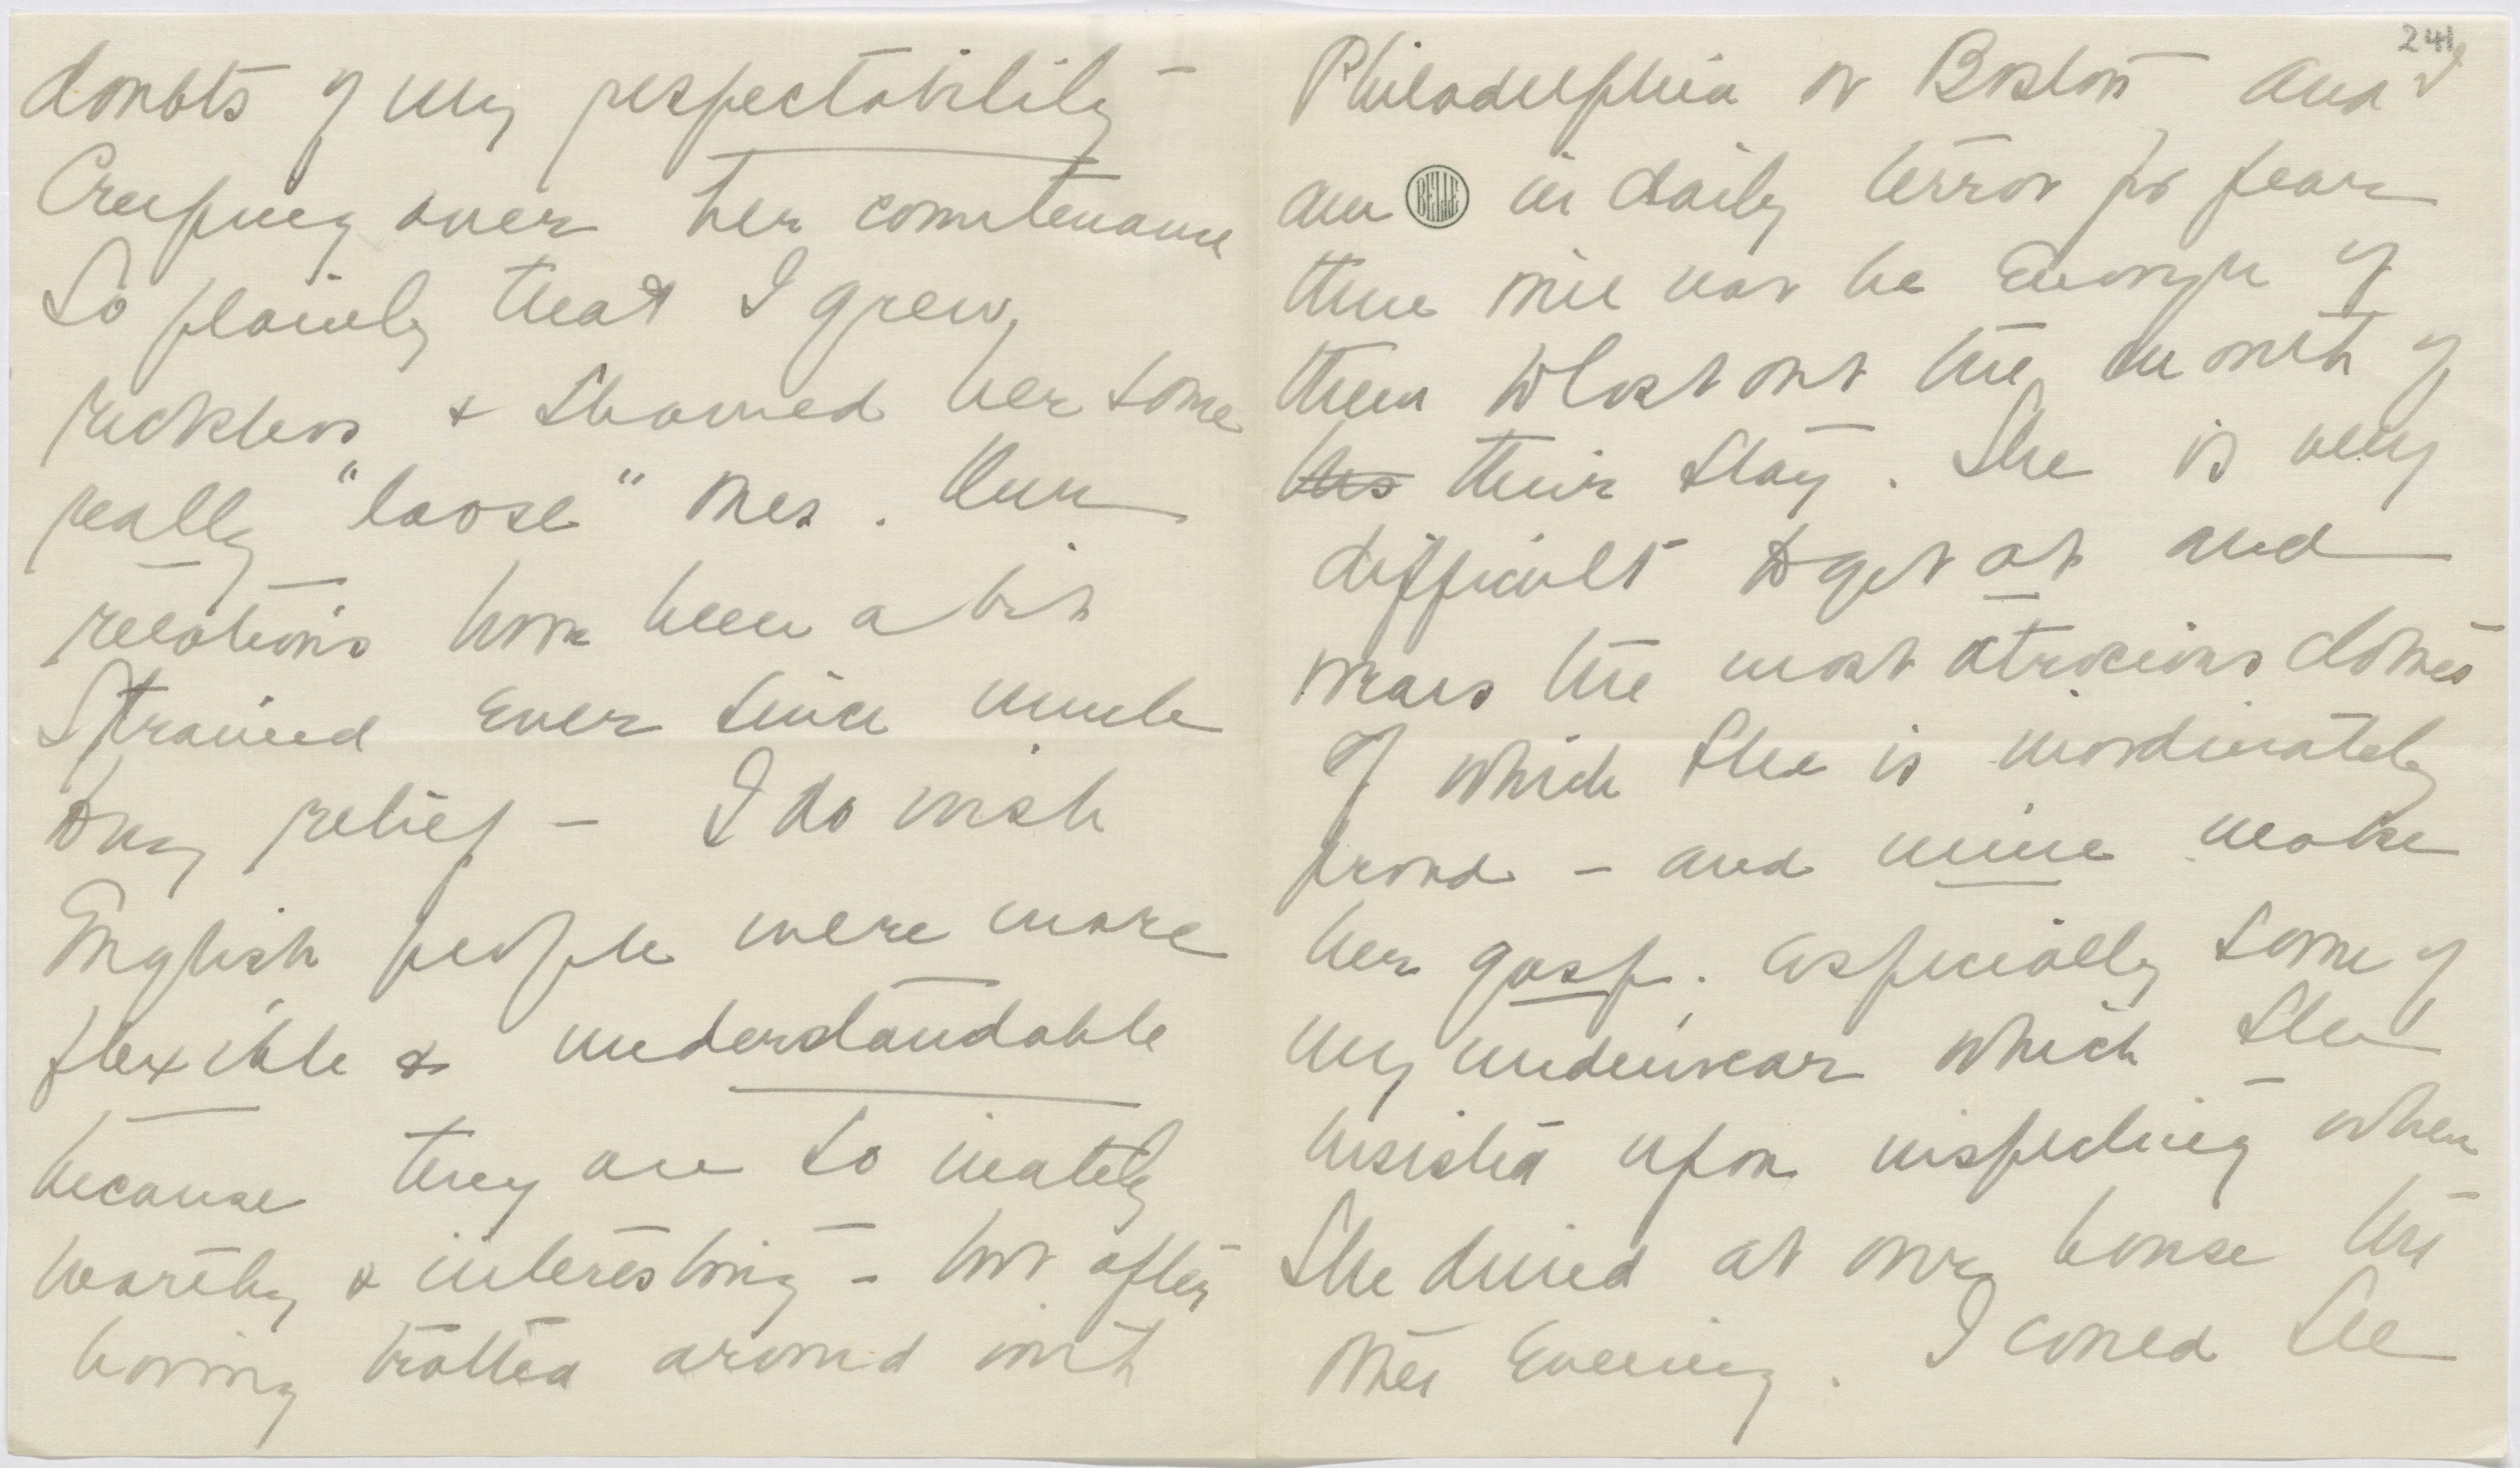 doubts of my respectability –
Creeping over her countenance
So plainly that I grew
reckless & showed her some
really "loose" ones. Our
relations have been a bit
Strained ever since much
to my relief – I do wish
English people were more
flexible & understandable
because they are so inately
worthy & interesting – but after
having trotted around with
241
Philadelphia or Boston and I
am BELLE in daily terror for fear
there will not be enough of
them to last out the month of
their stay. She is very
difficult to get at and
wears the most atrocious clothes
of which she is inordinately
proud – and mine make
her gasp. especially some of
my underwear which she
insisted upon inspecting when
She dined at our house the
other Evening. I could see